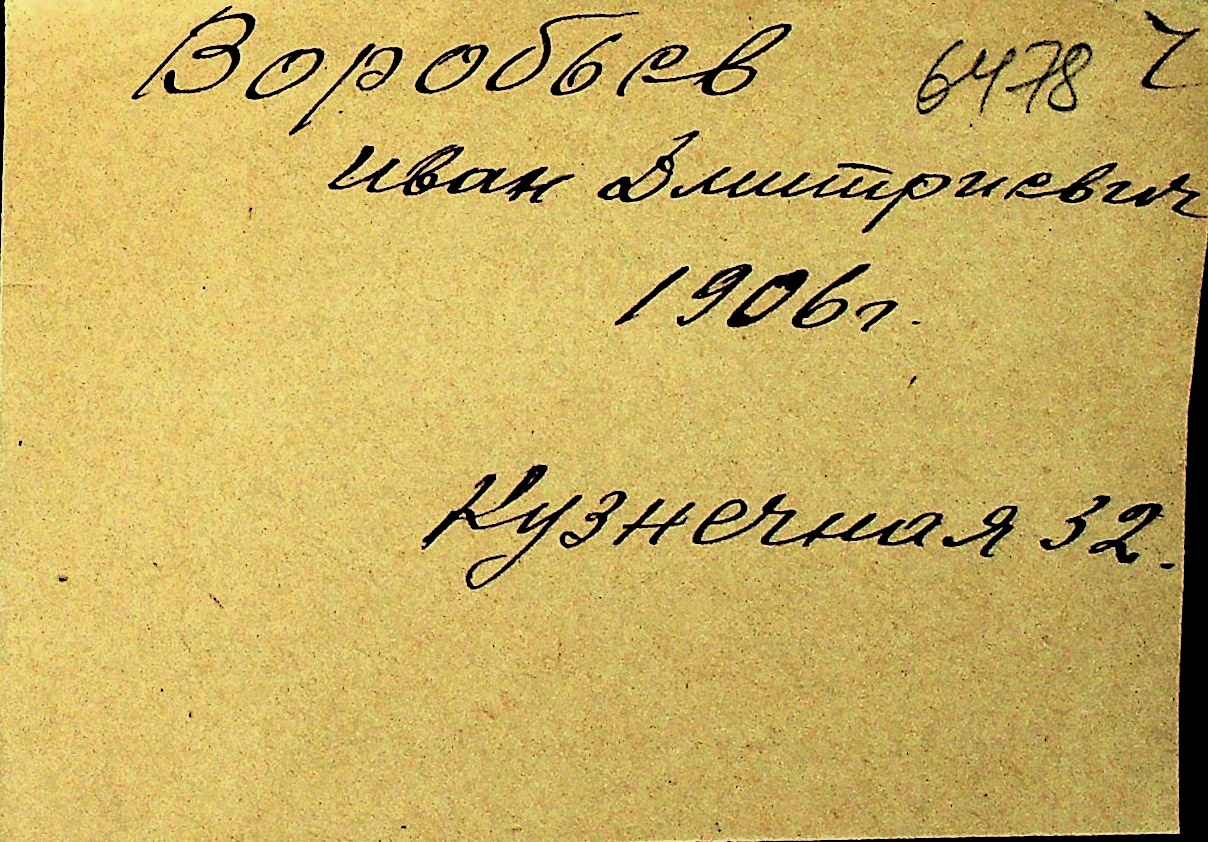 Воробьев 6478
Иван Дмитриевич
1906г.
Кузнечная 32.